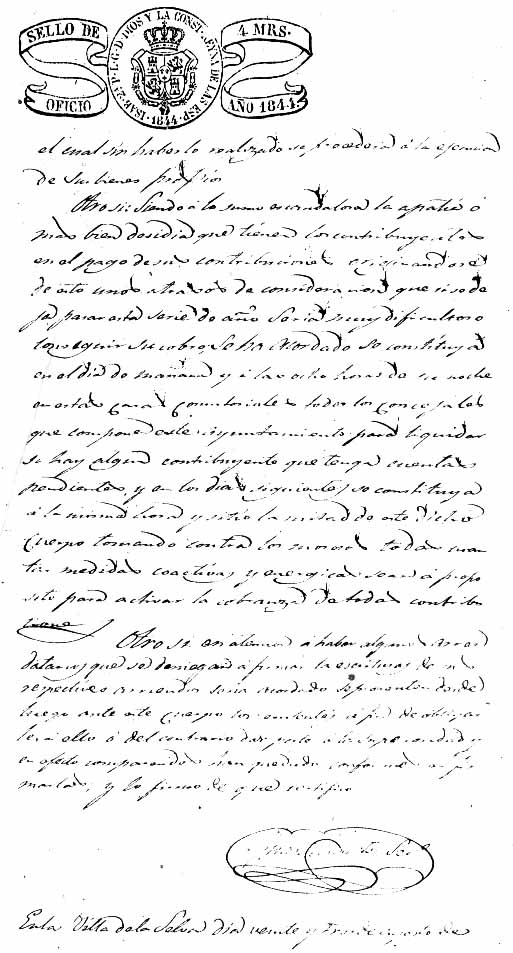 SELLO DE OFICIO
4 MRS. AÑO 1844
ISAB. 2ª P. L. G. D. DIOS Y LA CONST. REYNA DE LAS ESP. 1844
el cual sin haberlo realizado se procederá á la ejecucion
de sus bienes propios
Otro si: Siendo á lo sumo escandalosa la apatia ó
mas bien desidia que tienen los contribuyentes
en el pago de sus contribuciones originandose
de esto unos atrasos de consideracion que si se de
ja pasar esta serie de año seria muy dificultoso
conseguir su cobro, Se ha acordado se constituya
en el dia de mañana y á las ocho horas de su noche
en estas casas consistoriales todos los concejales
que componen este ayuntamiento para liquidar
si hay algun contribuyente que tenga cuentas
pendientes, y en los dias siguientes se constituya
á la misma hora y sitio la mitad de este dicho
Cuerpo tomando contra los morosos todas cuan
tas medidas coactivas y energicas sean á propo
sito para activar la cobranza de todas contribu
ciones
Otro si en atencion á haber algunos arren
datarios que se deniegan á firmar las escrituras de su
respectivo arriendo seria acordado se presenten desde
luego ante este Cuerpo los á fin de obligar
les á ello ó del contrario dar parte á la superioridad y
en efecto comparecidos han quedado conformes en fir
marlas, y lo firmo de que certifico
En la Villa de la Selva dia veinte y tres de agosto de